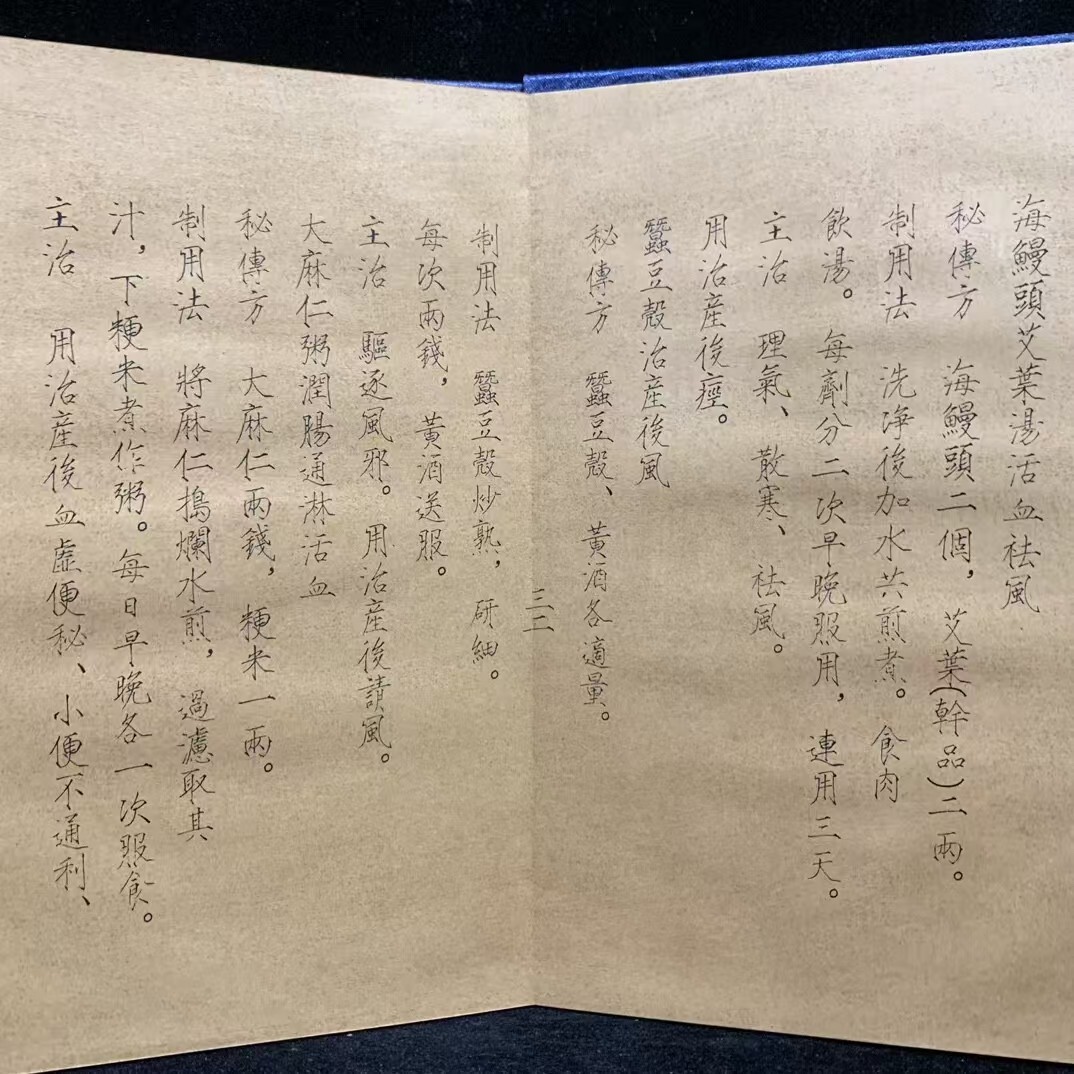 海鰻頭艾葉湯活血祛風
秘傳方 海鰻頭二個, 艾葉(幹品)二兩。
制用法 洗淨後加水共煎煮。 食肉
飲湯。 每劑分二次早晚服用, 連用三天。
主治 理氣、散寒、祛風。
用治產後痙。
蠶豆殼治產後風
秘傳方 蠶豆殼、黃酒各適量。
三二
制用法 蠶豆殼炒熟, 研細。
每次兩錢, 黃酒送服。
主治 驅逐風邪。 用治產後請風。
大麻仁粥潤腸通淋活血
秘傳方 大麻仁兩錢, 粳米一兩。
制用法 將麻仁搗爛水煎, 過濾取其
汁, 下粳米煮作粥。每日早晚各一次服食。
主治 用治產後血虛便秘、小便不通利、